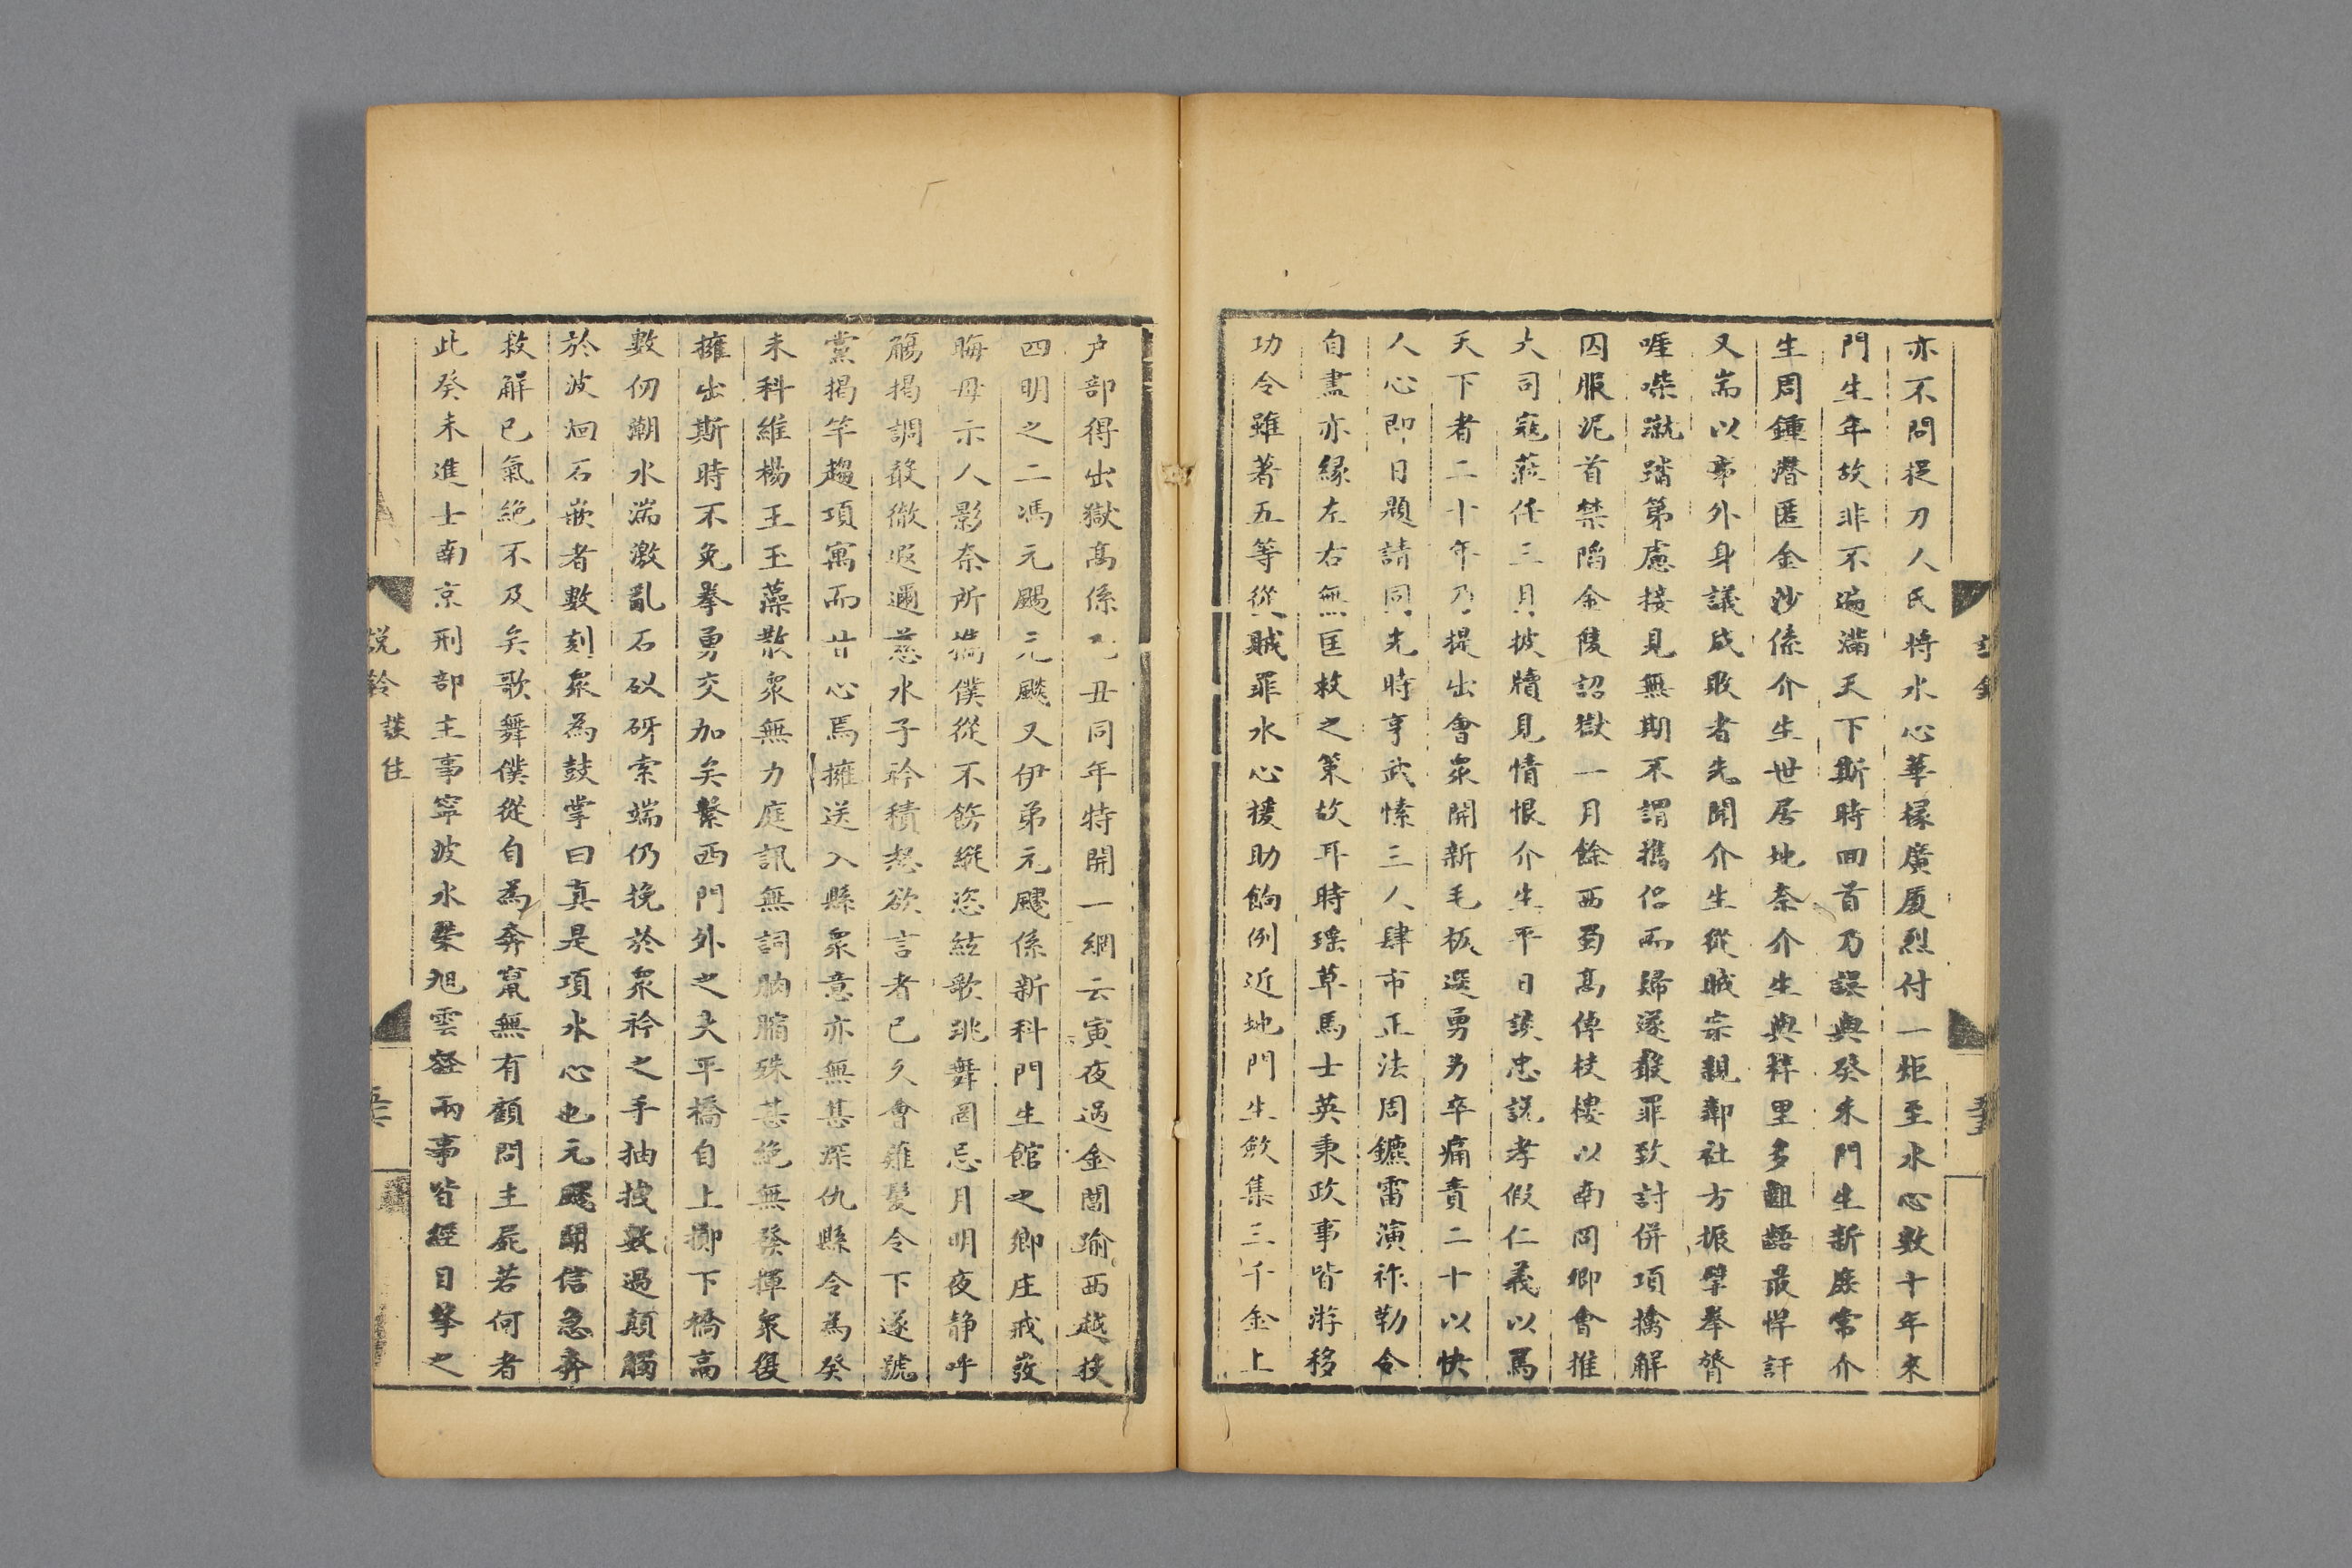 亦不問捉刀人氏將水心華椽廣厦烈付一炬至水心數十年來
門生年故非不遍滿天下斯時回首乃誤與癸未門生新庶常介
生周鍾潛匿金沙係介生世居地奈介生與梓里多齟齬最悍訐
又耑以事外身議成敗者先開介生從賊宗親鄰社方振犖舉膂
啀噪蹴踏第慮接見無期不謂携侣而歸遂聲罪致討併項擒解
囚服泥首禁陷金陵詔獄一月餘西蜀髙倬枝樓以南冏卿會推
大司寇蒞任三月披牘見情恨介生平日談忠説孝假仁義以罵
天下者二十年乃提出會衆開新毛板選勇力卒痛責二十以快
人心即日題請同先時亨武愫三人肆市正法周鑣雷演祚勒令
自盡亦縁左右無匡救之策故耳時瑤草馬士英秉政事皆游移
功令雖著五等從賊罪水心援助餉例近地門生斂集三千金上
户部得出獄髙係乙丑同年特開一網云寅夜過金閶踰西越技
四明之二馮元颺元飈又伊弟元䬝係新科門生館之鄉庄戒發
晦毋示人影奈所携僕從不飭縱恣絃歌跳舞罔忌月明夜静呼
觴揭調聲徹遐邇慈水子衿積怒欲言者已久會薙髪令下遂號
黨揭竿趨項寓而甘心焉擁送入縣衆意亦無甚深仇縣令為癸
未科維楊王玉藻散衆無力庭訊無詞朒腯殊甚絶無發揮衆復
擁出斯時不免拳勇交加矣繫西門外之大平橋自上擲下橋高
數仞潮水湍激亂石砍砑索端仍挽於衆衿之手抽拽數過顛觸
於波洄石嵌者數刻衆為鼓掌曰真是項水心也元䬝聞信急奔
救解已氣絶不及矣歌舞僕從自為奔竄無有顧問主屍若何者
此癸未進士南京刑部主事寧波水榮旭雲發兩事皆經目擊之
説鈴
談往